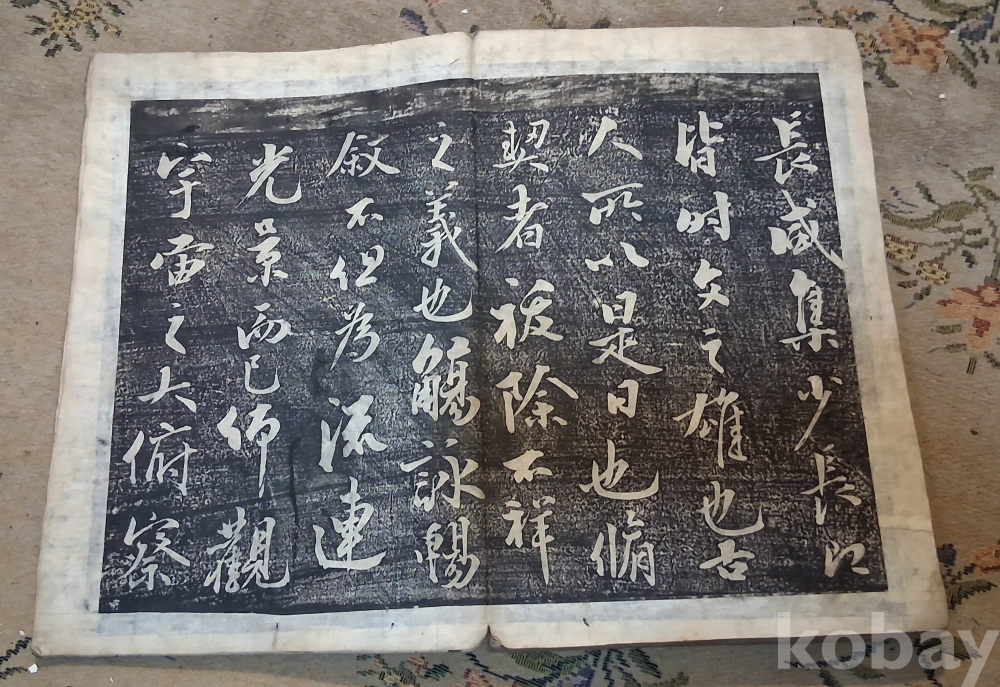 長咸集少長即
皆時文之雄也古
人所以是日也脩
契者祓除不祥
之義也觴詠暢
敘不但為流連
光景而已仰觀
宇宙之大俯察
kobay